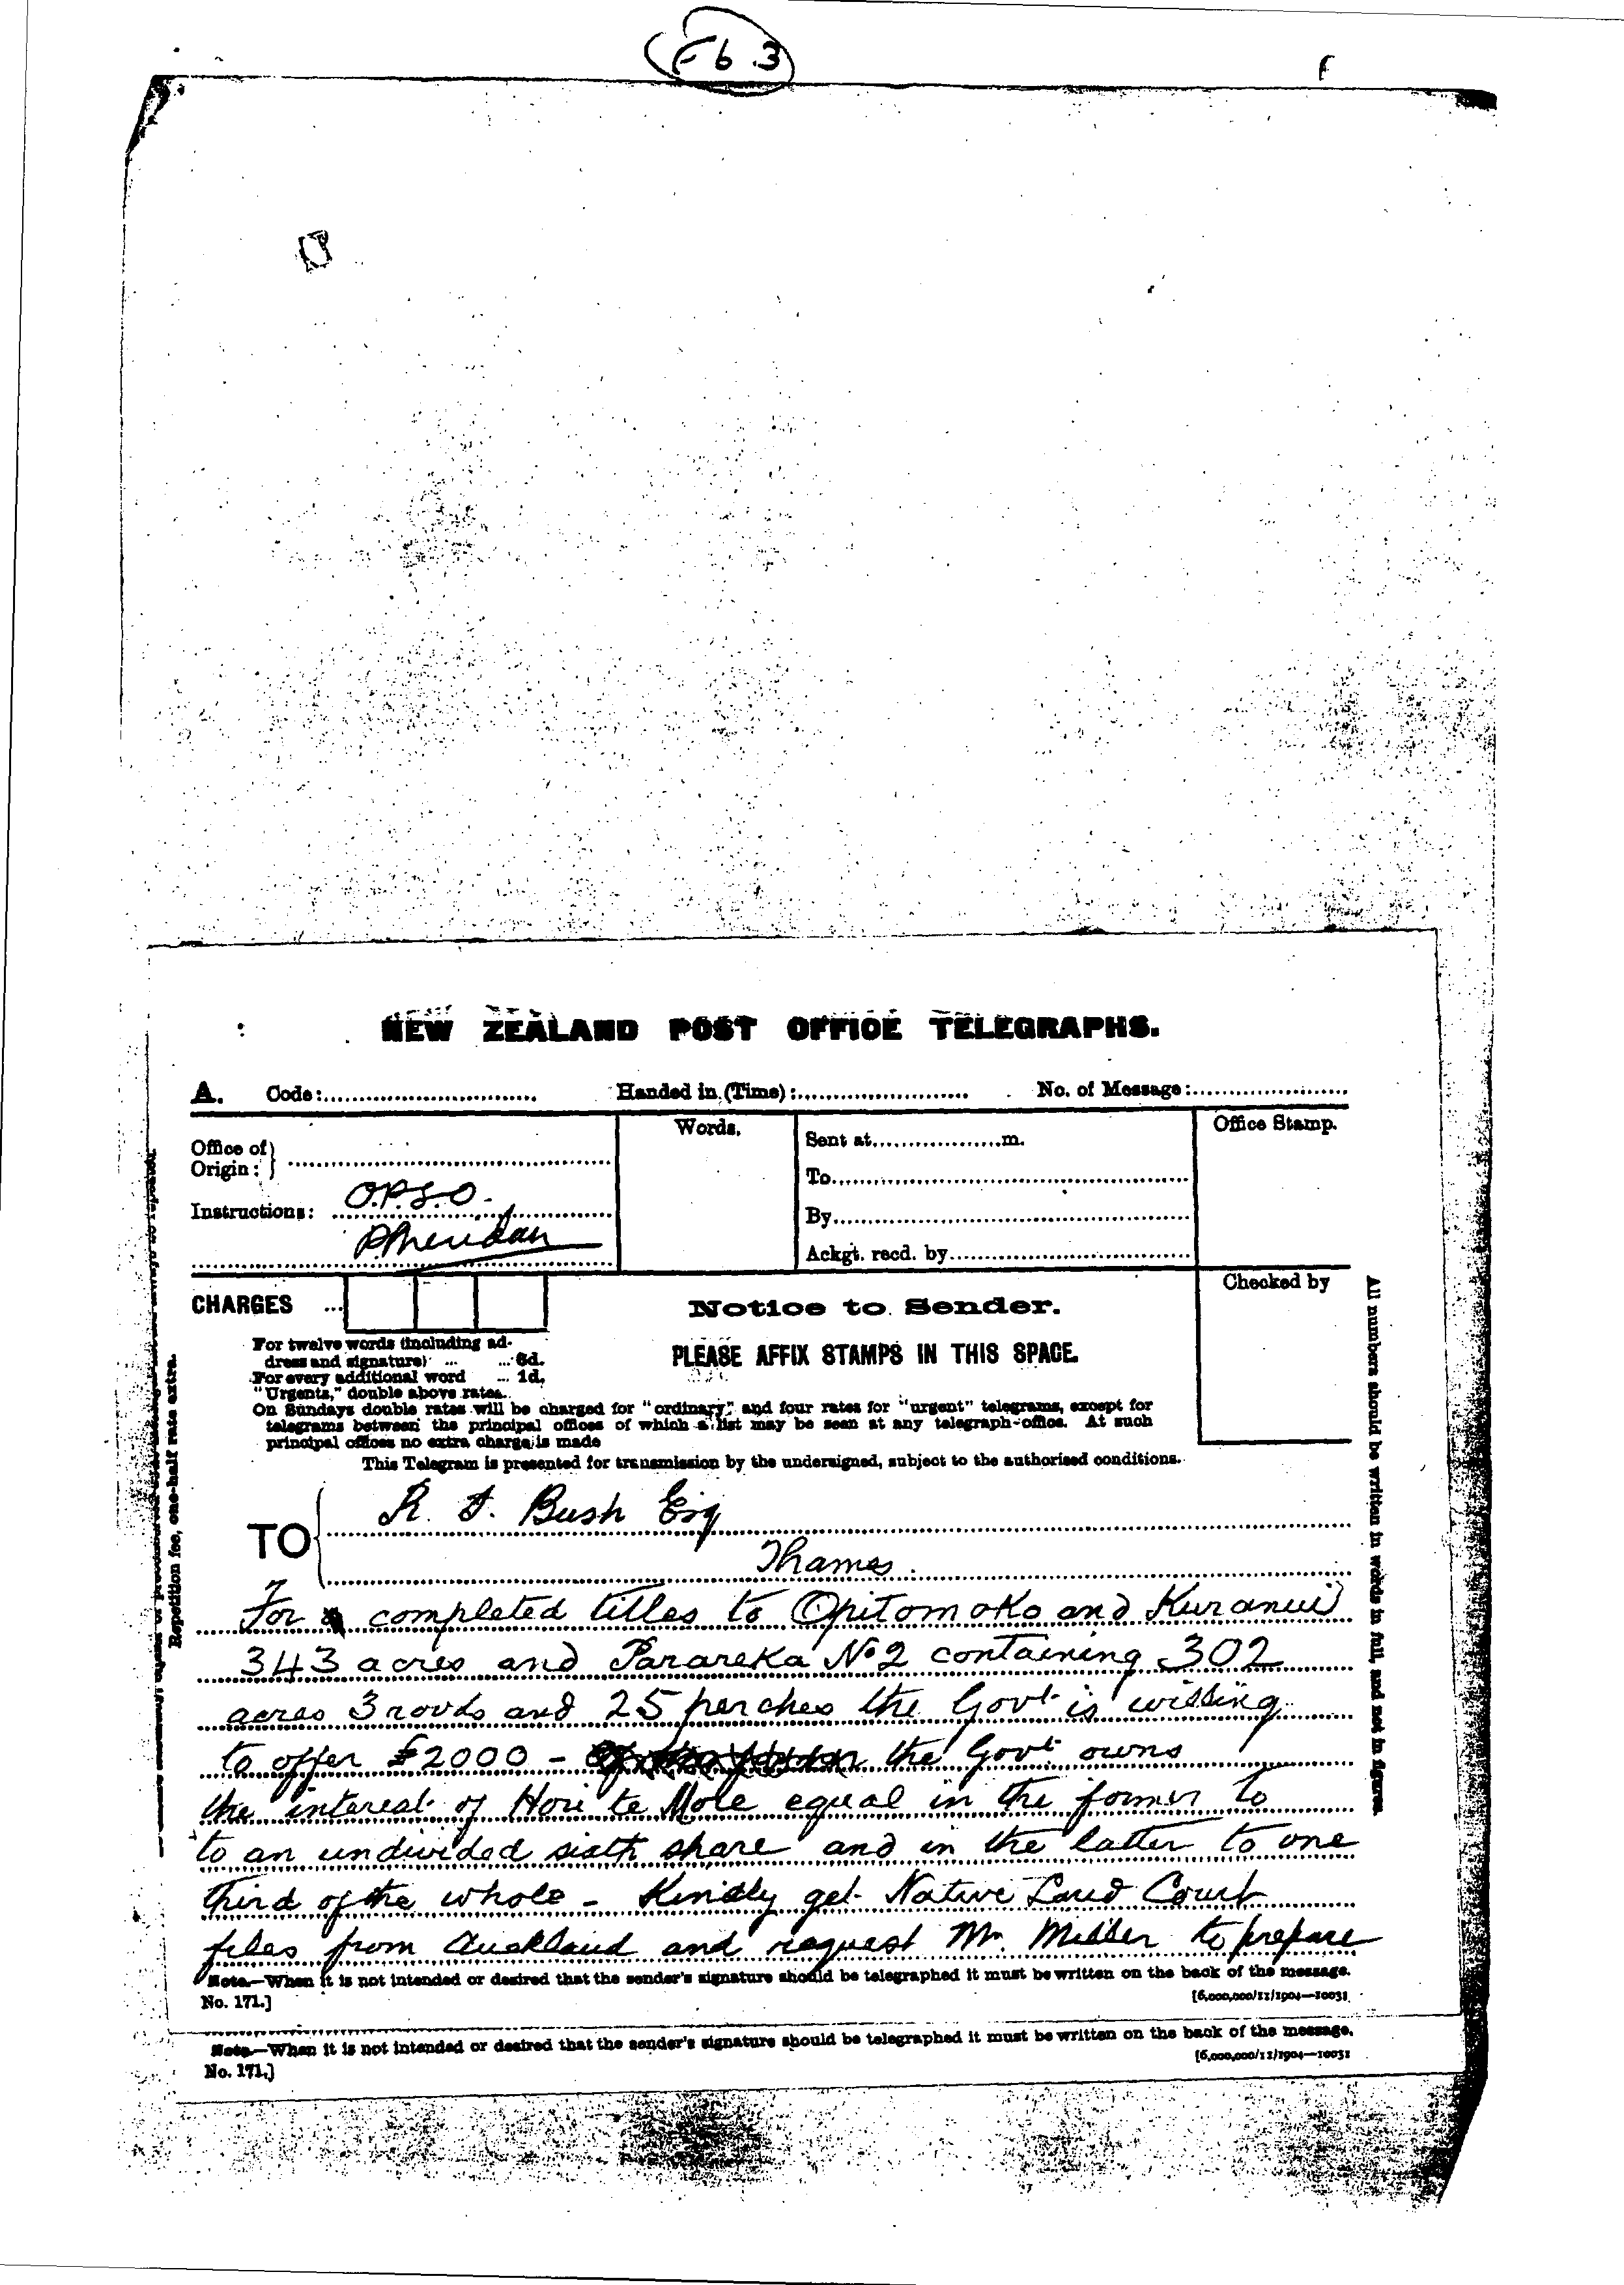 F 6.3
NEW ZEALAND POST OFFICE TELEGRAPHS.
A. Code: Handed in (Time): No. of Message:
Office of Origin:
Words.
Sent at m.
Office Stamp.
To
Instructions: O.P.S.O.
By
PSheridan
Ackgt. recd. by
CHARGES ...
Notice to Sender.
Checked by
For twelve words (including ad-
dress and signature) ... ... 6d.
For every additional word ... 1d.
"Urgents," double above rates.
PLEASE AFFIX STAMPS IN THIS SPACE.
On Sundays double rates will be charged for "ordinary," and four rates for "urgent" telegrams, except for
telegrams between the principal offices of which a list may be seen at any telegraph-office. At such
principal offices no extra charge is made
This Telegram is presented for transmission by the undersigned, subject to the authorised conditions.
TO R. S. Bush Esq
Thames.
For completed titles to Opitomoko and Kuranui
343 acres and Parareka No 2 containing 302
acres 3 roods and 25 perches the Govt is willing
to offer £2000 - the Govt owns
the interest of Hori te Mole equal in the former to
to an undivided sixth share and in the latter to one
third of the whole - Kindly get Native Land Court
files from Auckland and request Mr. Miller to prepare
Note.—When it is not intended or desired that the sender's signature should be telegraphed it must be written on the back of the message.
No. 171.] [6,000,000/11/1904—10031
Note.—When it is not intended or desired that the sender's signature should be telegraphed it must be written on the back of the message.
No. 171.] [6,000,000/11/1904—10031
Repetition fee, one-half rate extra.
All numbers should be written in words in full, and not in figures.